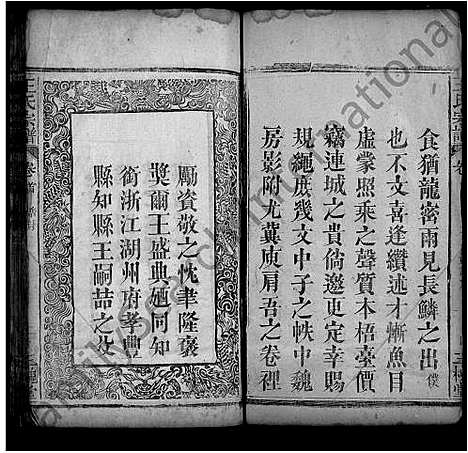 食猶龍嘗雨見長鱗之出僕
也不文喜逢纘述才慚魚目
虛蒙照乘之聲質木梧臺價
竊連城之貴倘邀更定幸賜
規繩度幾文中子之帙中魏
房影附尤冀庾肩吾之卷裡
王氏宗譜
卷首
勵資敬之忱聿隆褒
獎爾王盛典廼同知
銜浙江湖州府孝豐
縣知縣王嗣喆之父
familysearch international